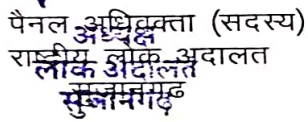 पैनल अधिवक्ता (सदस्य)
अध्यक्ष
राष्ट्रीय लोक अदालत
लोक अदालत
सुजानगढ़
सुजानगढ़